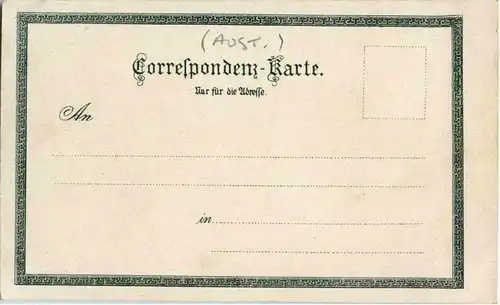 (AUST.)
Correſpondenz-Karte.
Nur für die Adreſſe.
An
in